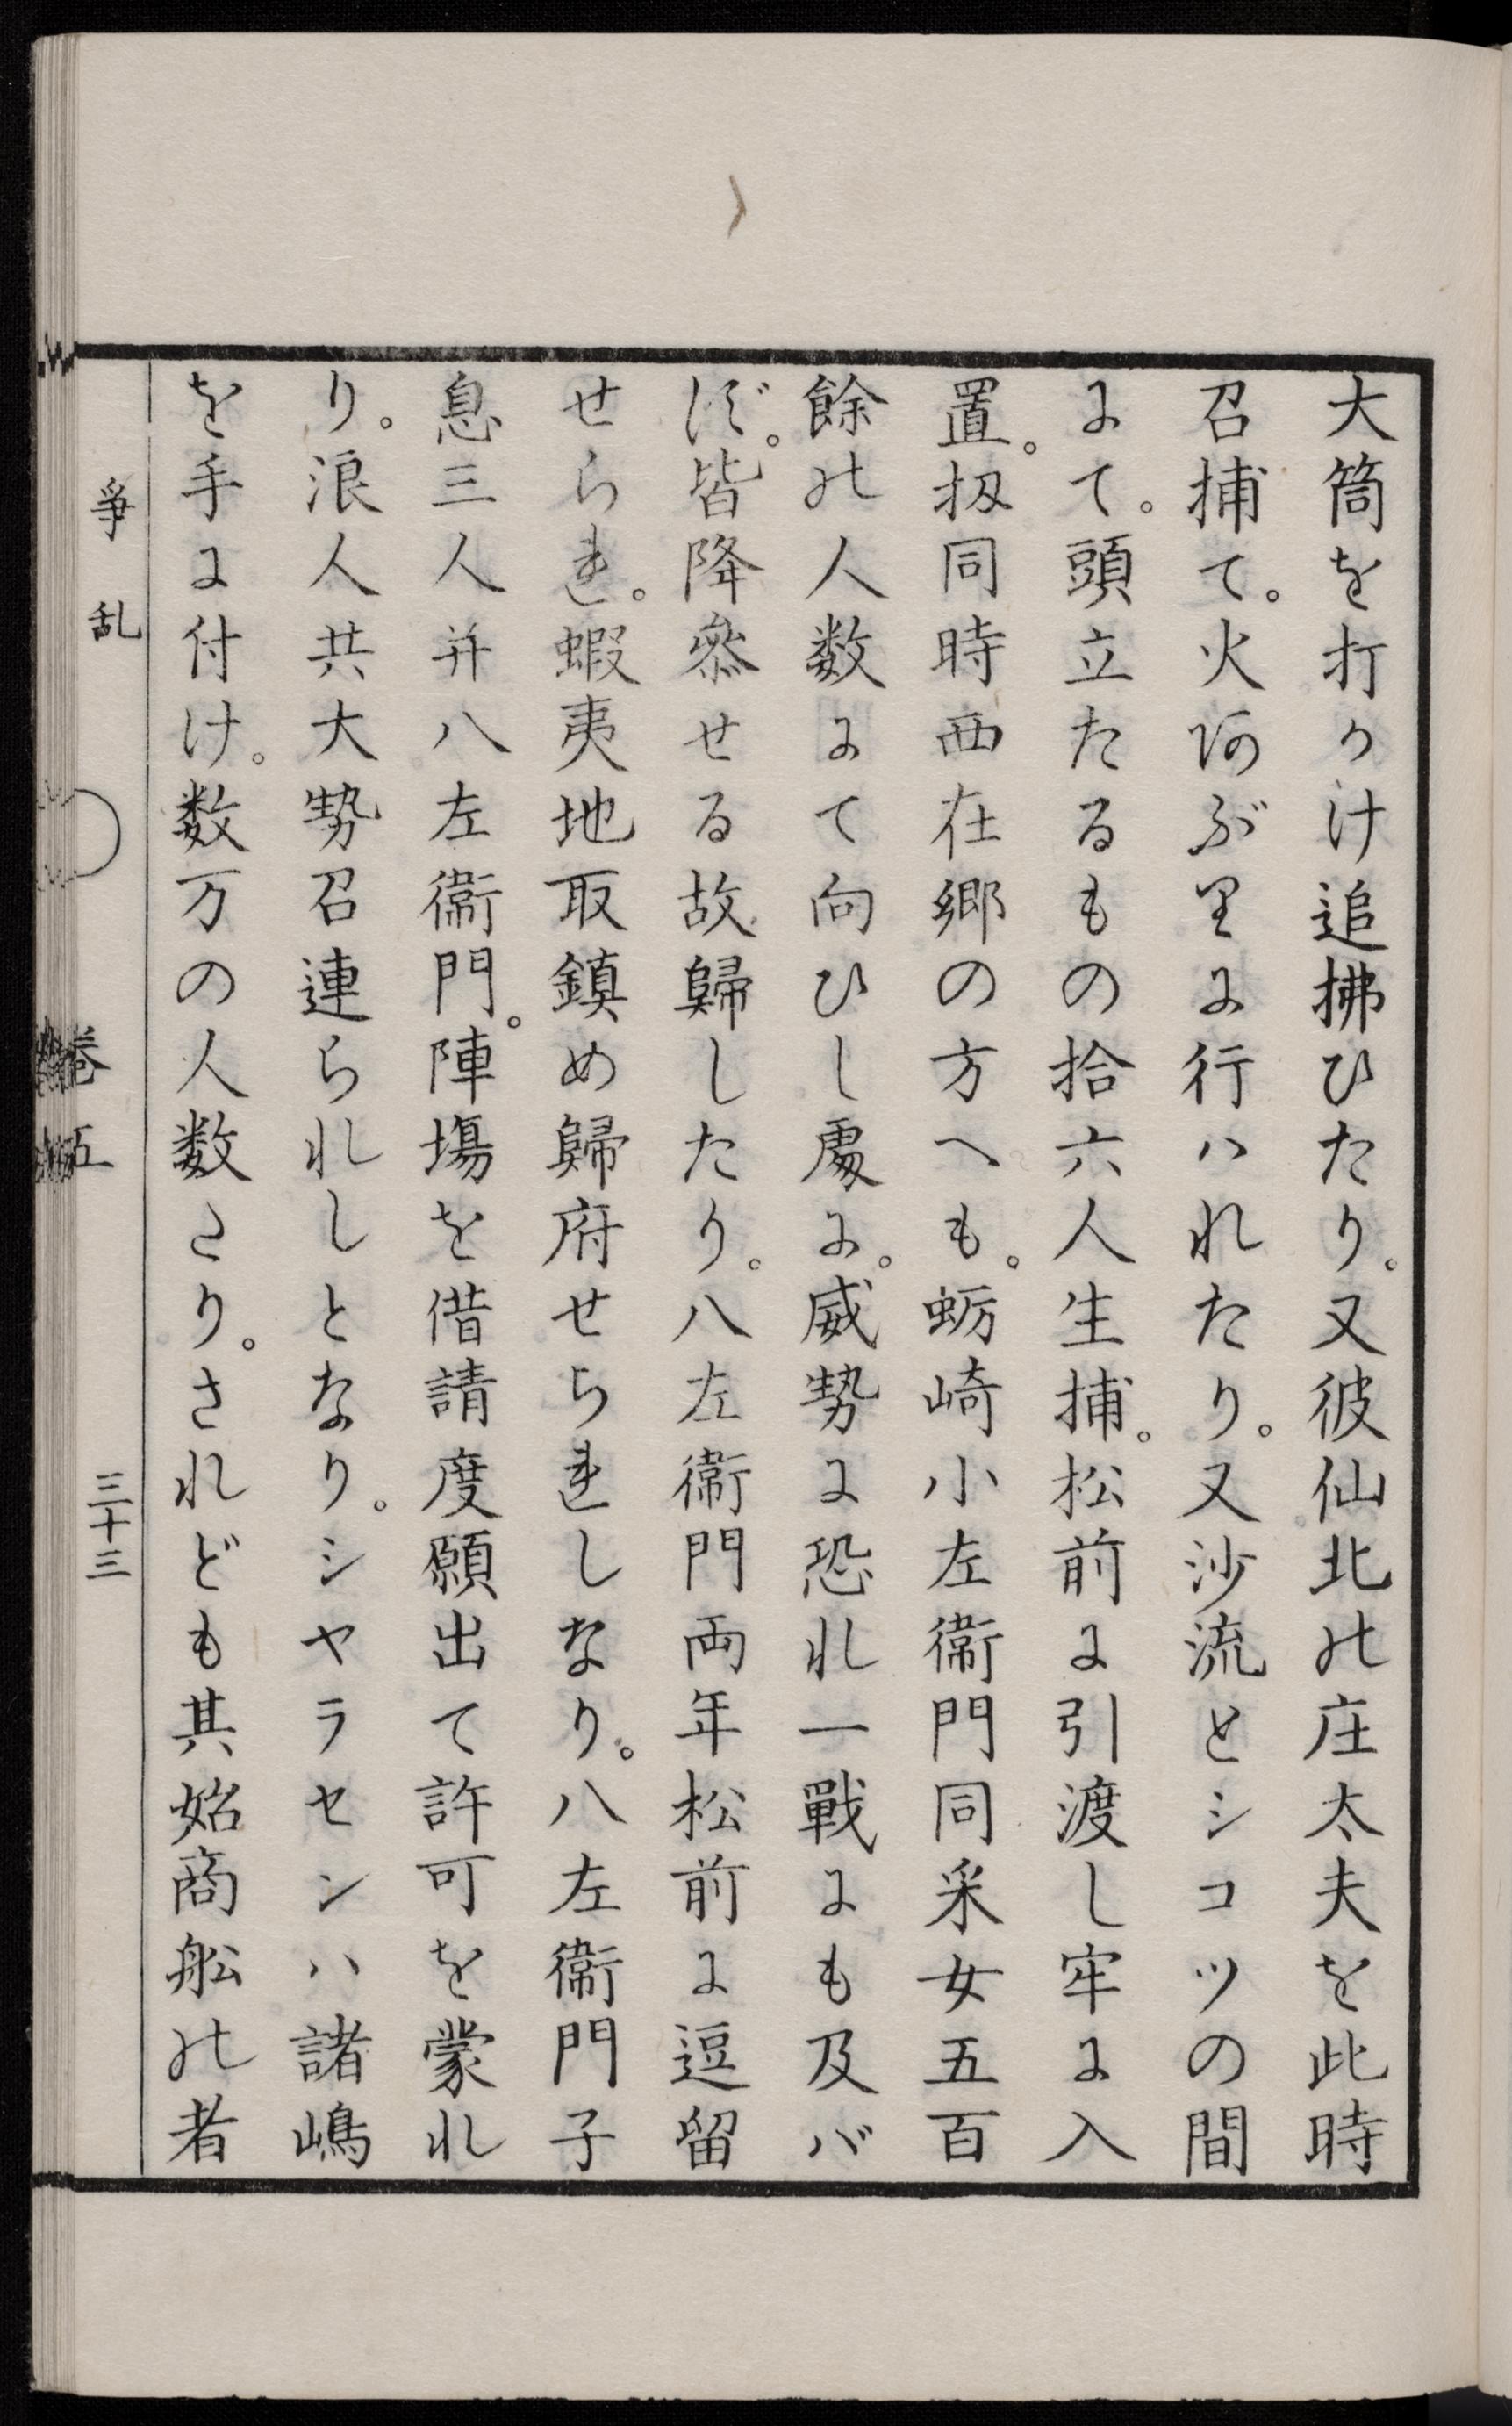 大筒を打かけ追拂ひたり。又彼仙北の庄太夫を此時
召捕て。火阿ぶりに行ハれたり。又沙流とシコツの間
にて。頭立たるもの拾六人生捕。松前に引渡し牢に入
置。扨同時西在郷の方へも。蛎崎小左衛門同采女五百
餘の人数にて向ひし處に。威勢に恐れ一戰にも及バ
ず。皆降參せる故歸したり。八左衛門両年松前に逗留
せられ。蝦夷地取鎮め歸府せられしなり。八左衛門子
息三人并八左衛門。陣場を借請度願出て許可を蒙れ
り。浪人共大勢召連られしとなり。シヤラセンハ諸嶋
を手に付け。数万の人数たり。されども其始商舩の者
爭乱
巻五
三十三